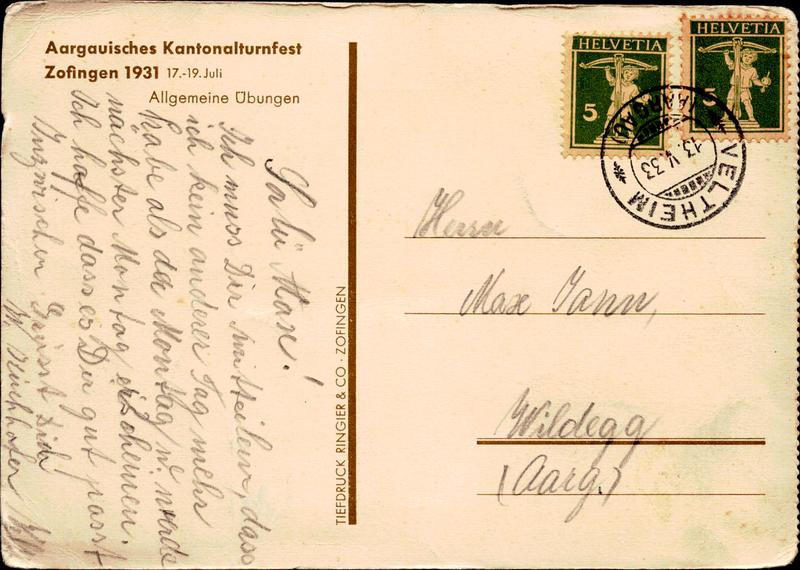 Aargauisches Kantonalturnfest
Zofingen 1931 17.-19. Juli
Allgemeine Übungen
Salü Max!
Ich muss Dir mitteilen, dass
ich kein anderer Tag mehr
habe als der Montag u. werde
nächster Montag erscheinen.
Ich hoffe dass es Dir gut passt
Inzwischen Grüsst Dich
W. Kirchhofer
TIEFDRUCK RINGIER & CO · ZOFINGEN
HELVETIA
5
HELVETIA
5
VELTHEIM
(AARGAU)
13.V.33
Herrn
Max Jann,
Wildegg
(Aarg.)